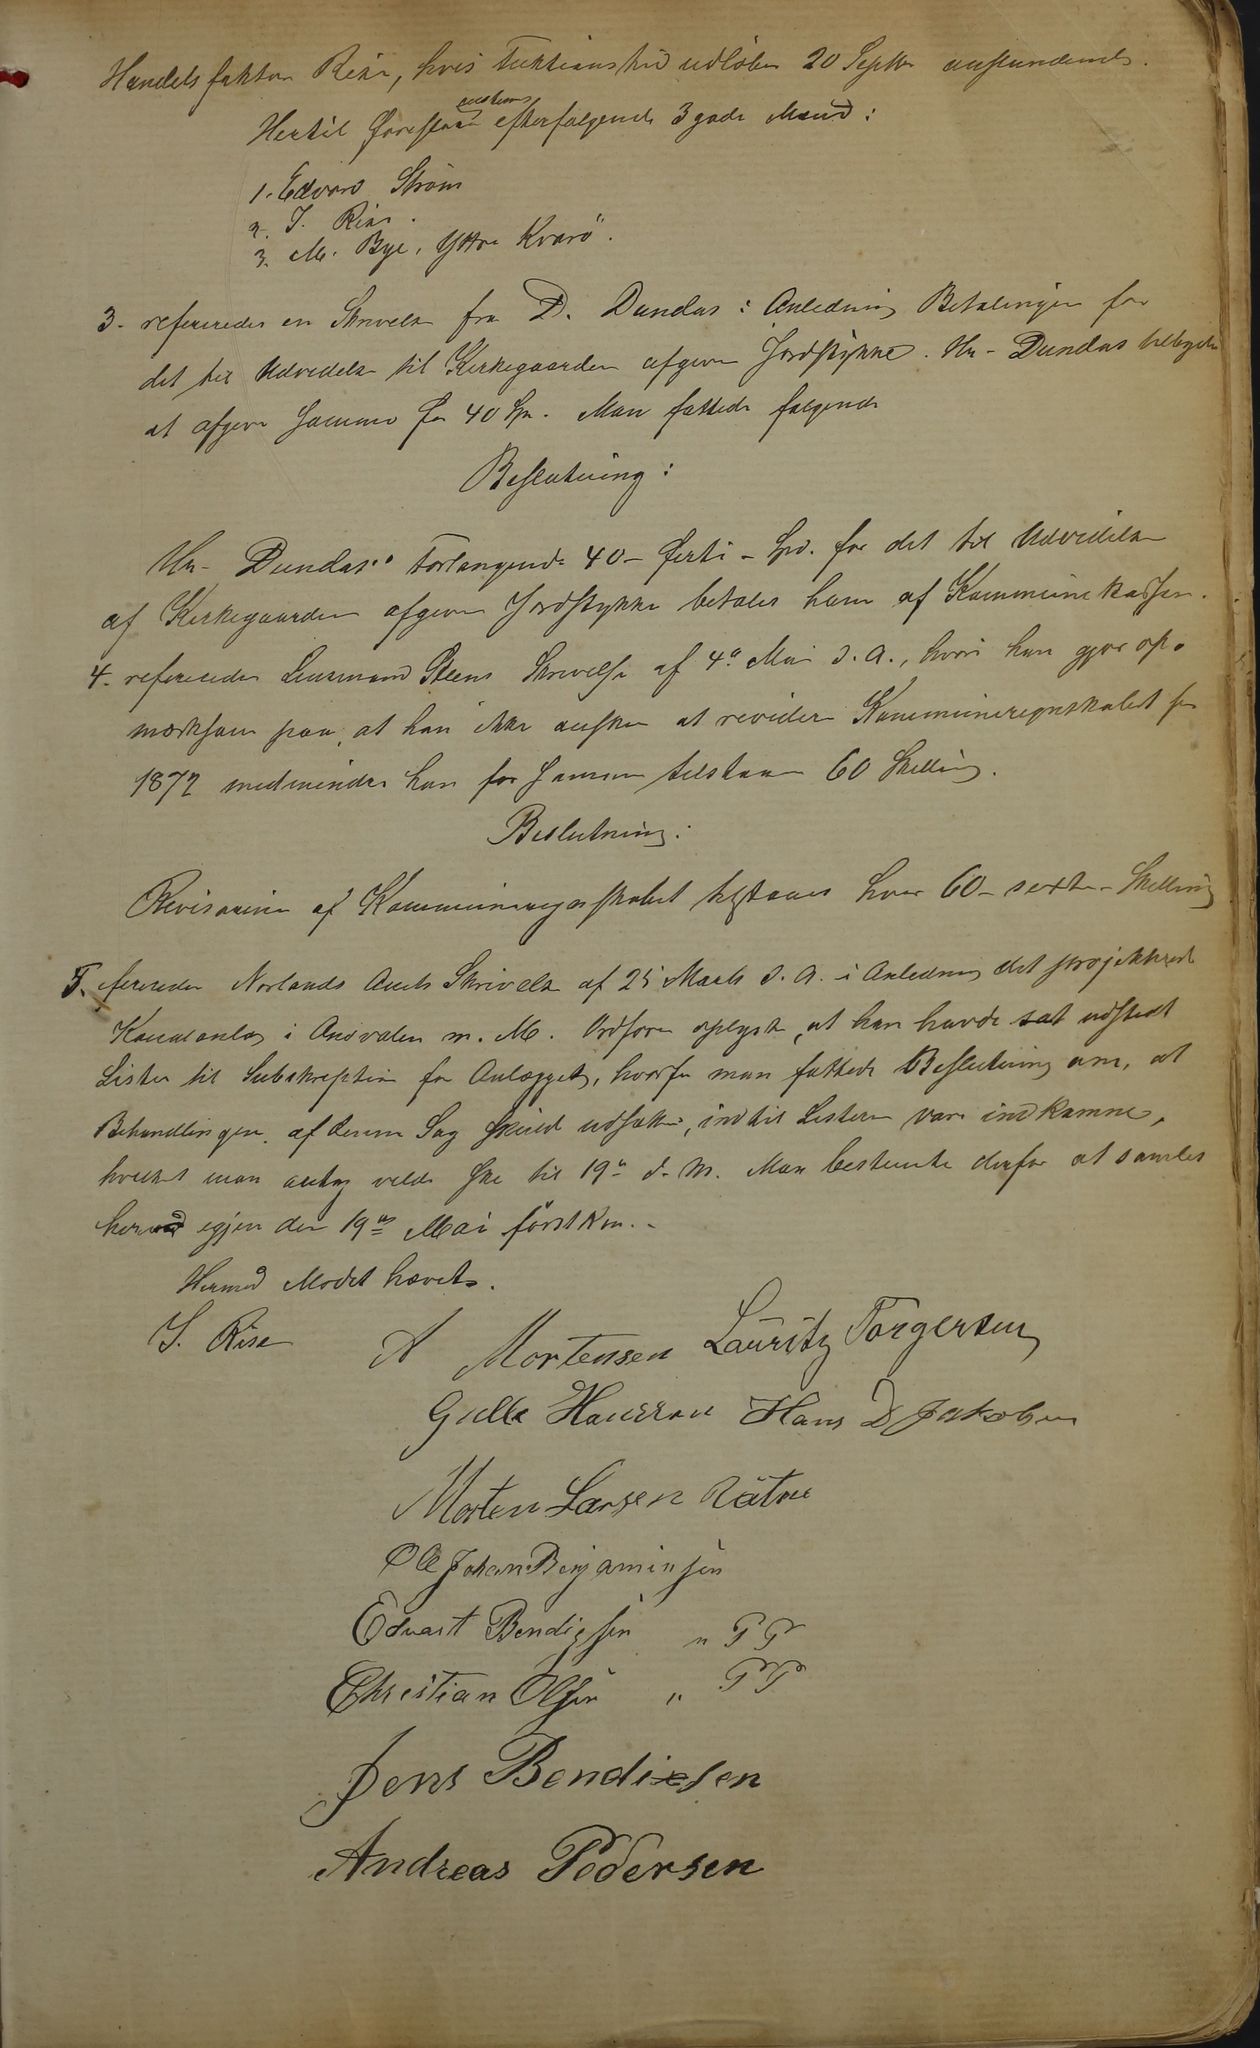 Handelsfaktor Risø, hvis Funktionstid udløber 20 Septbr anstundende.
Hertil foreslaaes efterfølgende 3 gode Mænd:
1. Edvard Strøm
2. J. Risø.
3. M. Bye, Yttre Kvarö.
3. refereredes en Skrivelse fra D. Dundas i Anledning Betalingen for
det til Udvidelse til Kirkegaarden afgivne Jordstykke. Hr. Dundas
at afgive samme for 40 Spd. Man fattede følgende
Beslutning:
Hr. Dundas' Forlangende 40 - førti - Spd. for det til Udvidelse
af Kirkegaarden afgivne Jordstykke betales ham af Kommunekassen.
4. refereredes Lensmand Steens Skrivelse af 4de Mai d. A., hvori han gjør op-
mærksom paa, at han ikke ønsker at revidere Kommuneregnskabet for
1872 medmindre han for samme tilstaaes 60 Skilling.
Beslutning:
Revisorerne af Kommuneregnskabet tilstaaes hver 60 - sexti - Skilling
5. refereredes Norlands Amts Skrivelse af 25 Marts d. A. i Anledning det projekterede
Kanalanlæg i m. M. Ordføren oplyste, at han havde sat udstedt
Lister til Subskription for Anlægget, hvorfor man fattede Beslutning om, at
Behandlingen af denne Sag skulde udsættes, indtil Listerne vare indkomne,
hvilket man antog vilde ske til 19de d. M. Man bestemte derfor at samles
herved igjen den 19de Mai førstkm.
Hermed Mødet hævet.
J. Risø A Mortensen Lauritz Torgersen
Hanssen Hans D Jakobsen
Morten Larsen
Ole Johan Benjaminsen
Edvart Bendigsen " P P
Christian Olsen " P P
Jens Bendixsen
Andreas Pedersen